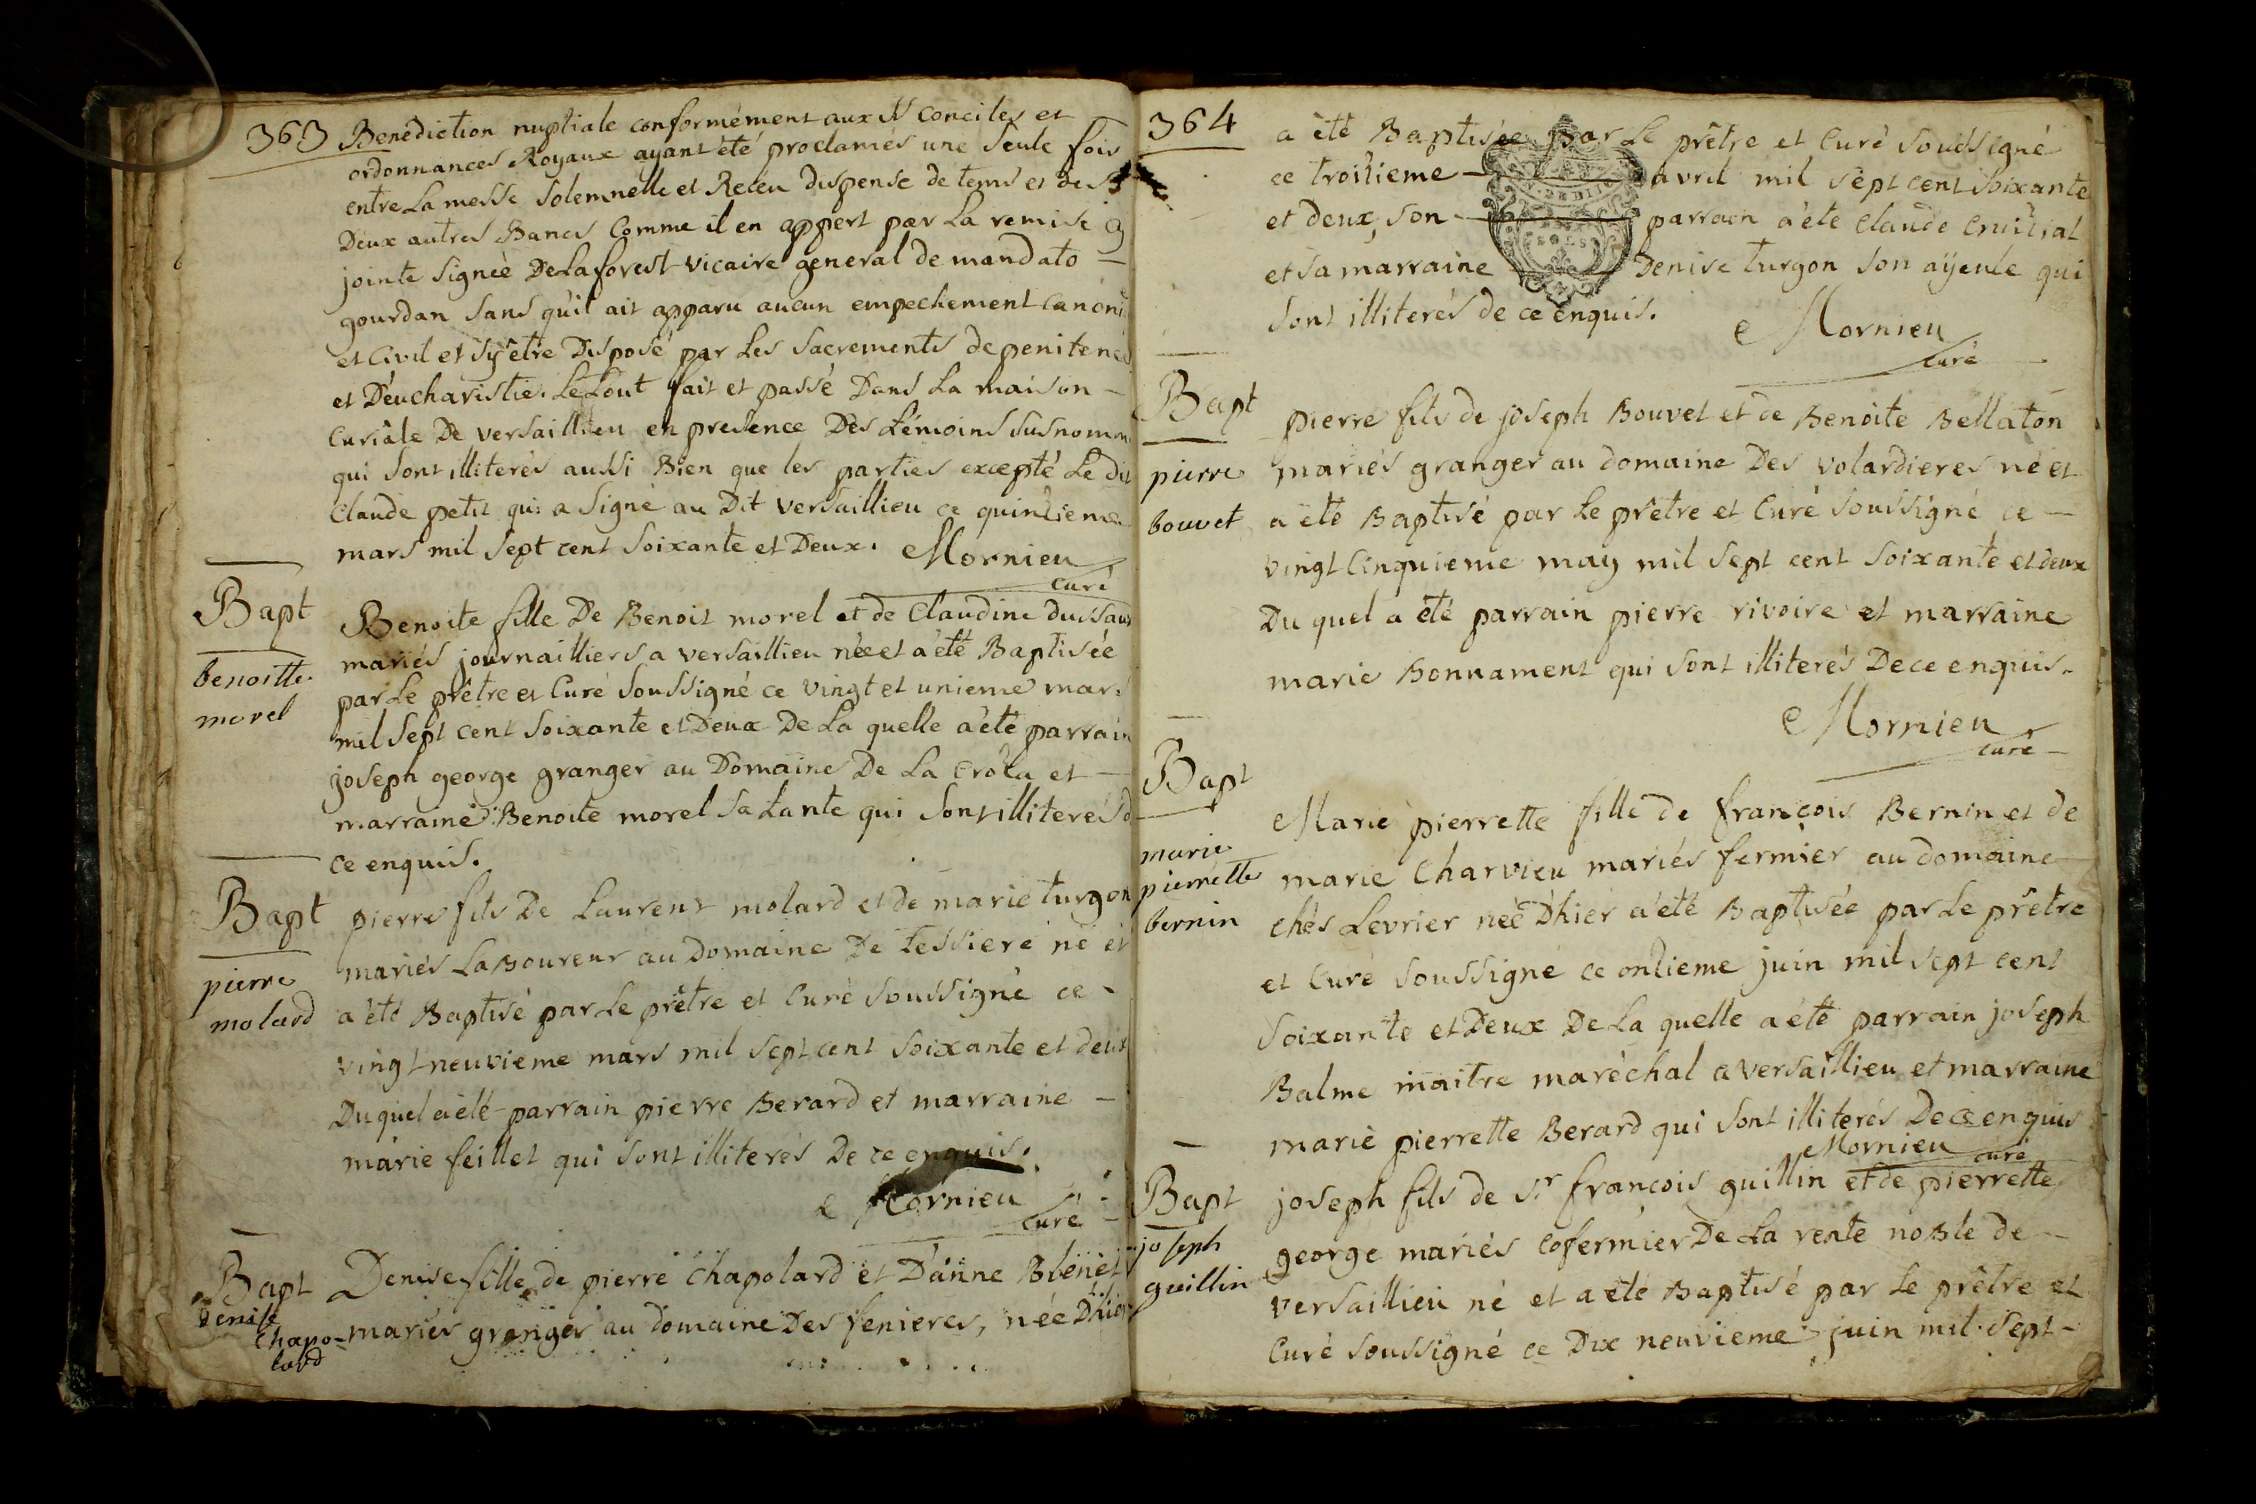 363 Benediction nuptiale conformément aux SS Conciles et
ordonnances Royaux ayant été proclamés une seule fois
entre La messe solemnelle et Receu dispense de tems et des
Deux autres Bancs Comme il en appert par La remise cy
jointe signée De Laforest vicaire general de mandato —
gourdan sans qu'il ait apparu aucun empechement canoni
et Civil et s'y être Disposé par Les sacrements de penitence
et D'éucharistie. Le tout fait et passé Dans La maison —
Curiâle De versaillieu en presence Des témoins susnommé
qui sont illiterés aussi Bien que les parties excepté Le dit
Claude petit qui a signé au Dit versaillieu ce quinzieme
mars mil sept cent soixante et Deux. Mornieu
curé
Bapt
benoitte
morel
Benoite fille De Benoit morel et de Claudine Dussau
mariés journailliers a versaillieu née et a été Baptisée
par Le prêtre et Curé soussigné ce vingt et unieme mars
mil sept cent soixante et Deux De La quelle a été parrain
joseph george granger au Domaine De La Croza et —
marraine Benoite morel sa tante qui sont illiterés d
ce enquis.
Bapt
pierre
molard
pierre fils De Laurent molard et de marie turgon
mariés Laboureur au domaine De tessiere né et
a été Baptisé par Le prêtre et Curé soussigné ce -
vingt neuvieme mars mil sept cent soixante et deux
Duquel a été parrain pierre Berard et marraine —
marie feillet qui sont illiterés De ce enquis.
Mornieu
curé
Bapt
denise
Chapo-
lard
Denise fille de pierre Chapolard et D'anne Blenet
mariés granger au domaine Des fenieres, née D'hier
364
a été Baptisée par Le prêtre et Curé soussigné
ce troisieme — avril mil sept cent soixante
et deux, son — parrain a été Claude
et sa marraine — Denise turgon son ayeule qui
sont illiterés de ce enquis.
Mornieu
curé
Bapt
pierre
bouvet
pierre fils de joseph Bouvet et de Benoite Bellaton
mariés granger au domaine Des volardieres né et
a été Baptisé par Le prêtre et Curé soussigné ce —
vingt cinquieme may mil sept cent soixante et deux
Du quel a été parrain pierre rivoire et marraine
marie Bonnament qui sont illiterés De ce enquis.
Mornieu
curé
Bapt
marie
pierrette
bernin
Marie pierrette fille de françois Bernin et de
marie Charvieu mariés fermier au domaine
chés Levrier née D'hier a été Baptisée par Le prêtre
et Curé soussigné ce onzieme juin mil sept cent
soixante et Deux De La quelle a été parrain joseph
Balme maitre maréchal a versaillieu et marraine
marie pierrette Berard qui sont illiterés De ce enquis
Mornieu curé
Bapt
joseph
guillin
joseph fils de Sr françois guillin et de pierrette
george mariés cofermier De La rente noble de —
versaillieu né et a été Baptisé par Le prêtre et
Curé soussigné ce Dix neuvieme juin mil sept -